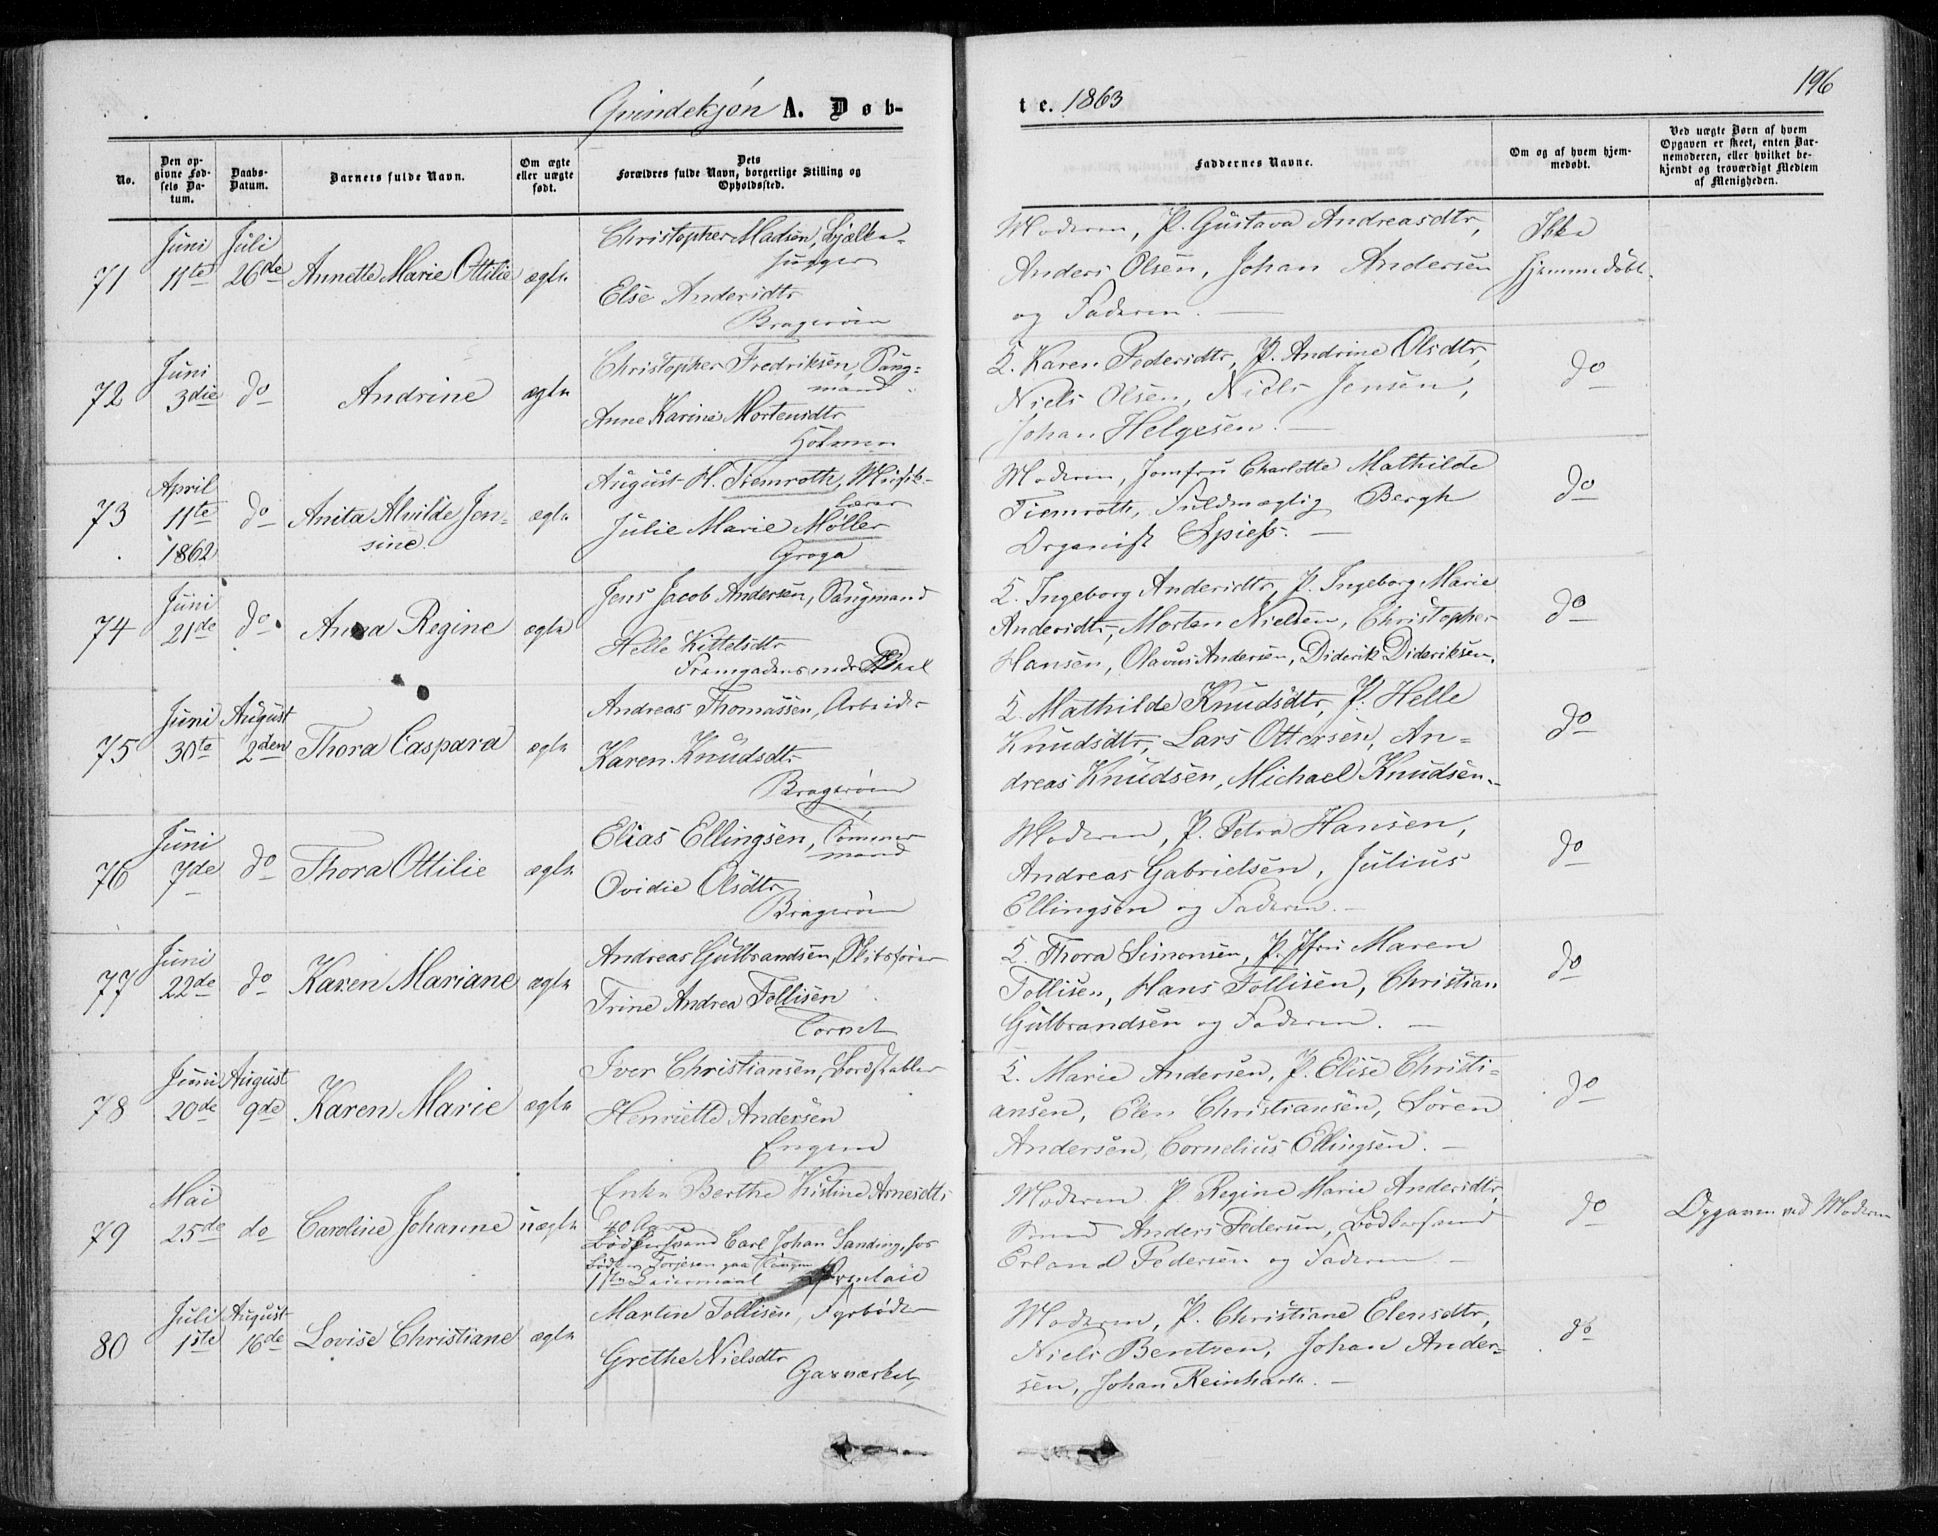 Qvindekjøn A. Døb-
te. 1863
196
No.
Den op-
givne Fød-
sels Da-
tum.
Daabs-
Datum.
Barnets fulde Navn.
Om ægte
eller uægte
født.
Dets
Forældres fulde Navn, borgerlige Stilling og
Opholdssted.
Faddernes Navne.
Om og af hvem hjem-
medøbt.
Ved uægte Børn af hvem
Opgaven er skeet, enten Bar-
nemoderen, eller hvilket be-
kjendt og troværdigt Medlem
af Menigheden.
71
Juni
11te
Juli
26de
Annette Marie Ottilie
ægte
Christopher Madsen, Bjælke-
hugger
Else Andersdtr
Bragerøen
Moderen, P. Gustava Andreasdtr,
Anders Olsen, Johan Andersen
og Faderen.
Ikke
hjemmedøbt.
72
Juni
3die
do
Andrine
ægte
Christopher Fredriksen, Saug-
mand
Anne Karine Mortensdtr
Holmen
Q. Karen Pedersdtr, P. Andrine Olsdtr,
Niels Olsen, Niels Jensen,
Johan Helgesen.
do
73
April
11te
1862
do
Anita Alvilde Jen-
sine.
ægte
August H. Tiemroth, Musik-
lærer
Julie Marie Møller
Moderen, Jomfru Charlotte Mathilde
Tiemroth, Fuldmægtig Bergh
Organist Spiess.
do
74
Juni
21de
do
Anna Regine
ægte
Jens Jacob Andersen, Saugmand
Helle Kittelsdtr
Q. Ingeborg Andersdtr, P. Ingeborg Marie
Andersdtr, Morten Nielsen, Christopher
Hansen, Olavus Andersen, Diderik Dideriksen.
do
75
Juni
30te
August
2den
Thora Caspara
ægte
Andreas Thomassen, Arbeider
Karen Knudsdtr
Bragerøen
Q. Mathilde Knudsdtr, P. Helle
Knudsdtr, Lars Ottersen, An-
dreas Knudsen, Michael Knudsen.
do
76
Juni
7de
do
Thora Ottilie
ægte
Elias Ellingsen, Tømmer-
mand
Ovidie Olsdtr
Bragerøen
Moderen, P. Petra Hansen,
Andreas Gabrielsen, Julius
Ellingsen og Faderen.
do
77
Juni
22de
do
Karen Mariane
ægte
Andreas Gulbrandsen, Skibsfører
Trine Andrea Tollisen
Tornet
Q. Thora Simonsen, P. Jfru Maren
Tollisen, Hans Tollisen, Christian
Gulbrandsen og Faderen.
do
78
Juni
20de
August
9de
Karen Marie
ægte
Iver Christiansen, Bordstabler
Henriette Andersen
Engene
Q. Marie Andersen, P. Elise Christi-
ansen, Elen Christiansen, Søren
Andersen, Cornelius Ellingsen.
do
79
Mai
25de
do
Caroline Johanne
uægte
Enke Berthe Kistine Arnesdtr
40 Aar
Bødkersvend Carl Johan Sanding, hos
1ste Leiermaal
Moderen, P. Regine Marie Andersdtr,
Smed Anders Pedersen, Bødkersvend
Erland Pedersen og Faderen.
do
Opgaven ved Moderen
80
Juli
1ste
August
16de
Lovise Christiane
ægte
Martin Tollisen, Fyrbøder
Grethe Nielsdtr
Gasværket
Moderen, P. Christiane Elensdtr,
Niels Bentsen, Johan Ander-
sen, Johan Reinhardt.
do